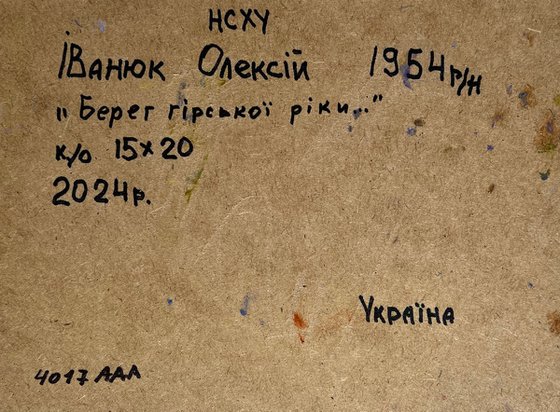 НСХУ
Іванюк Олексій 1954 р/н
„Берег гірської ріки..."
к/о 15х20
2024р.
Україна
4017 ААА